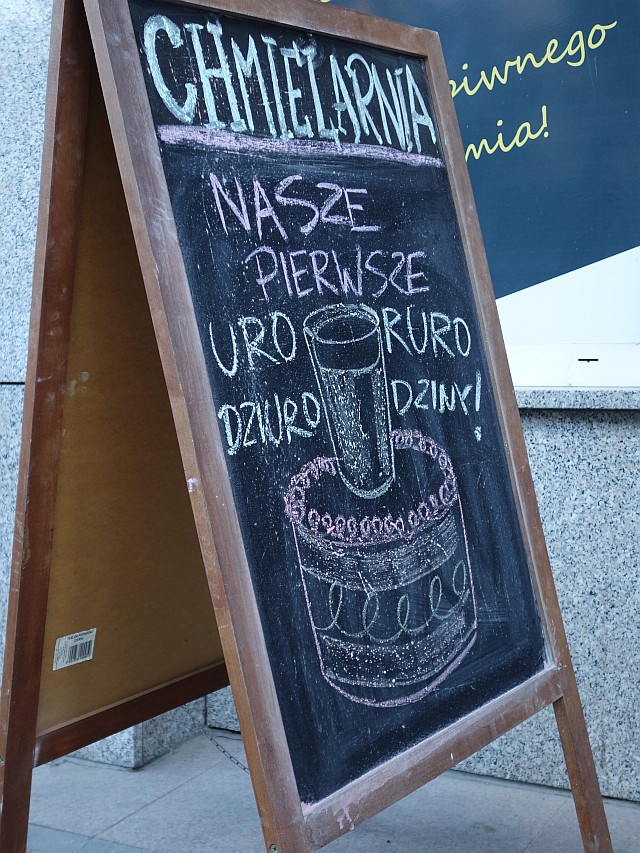 CHMIELARNIA
NASZE
PIERWSZE
URO RURO
DZIURO DZINY!
piwnego
mia!